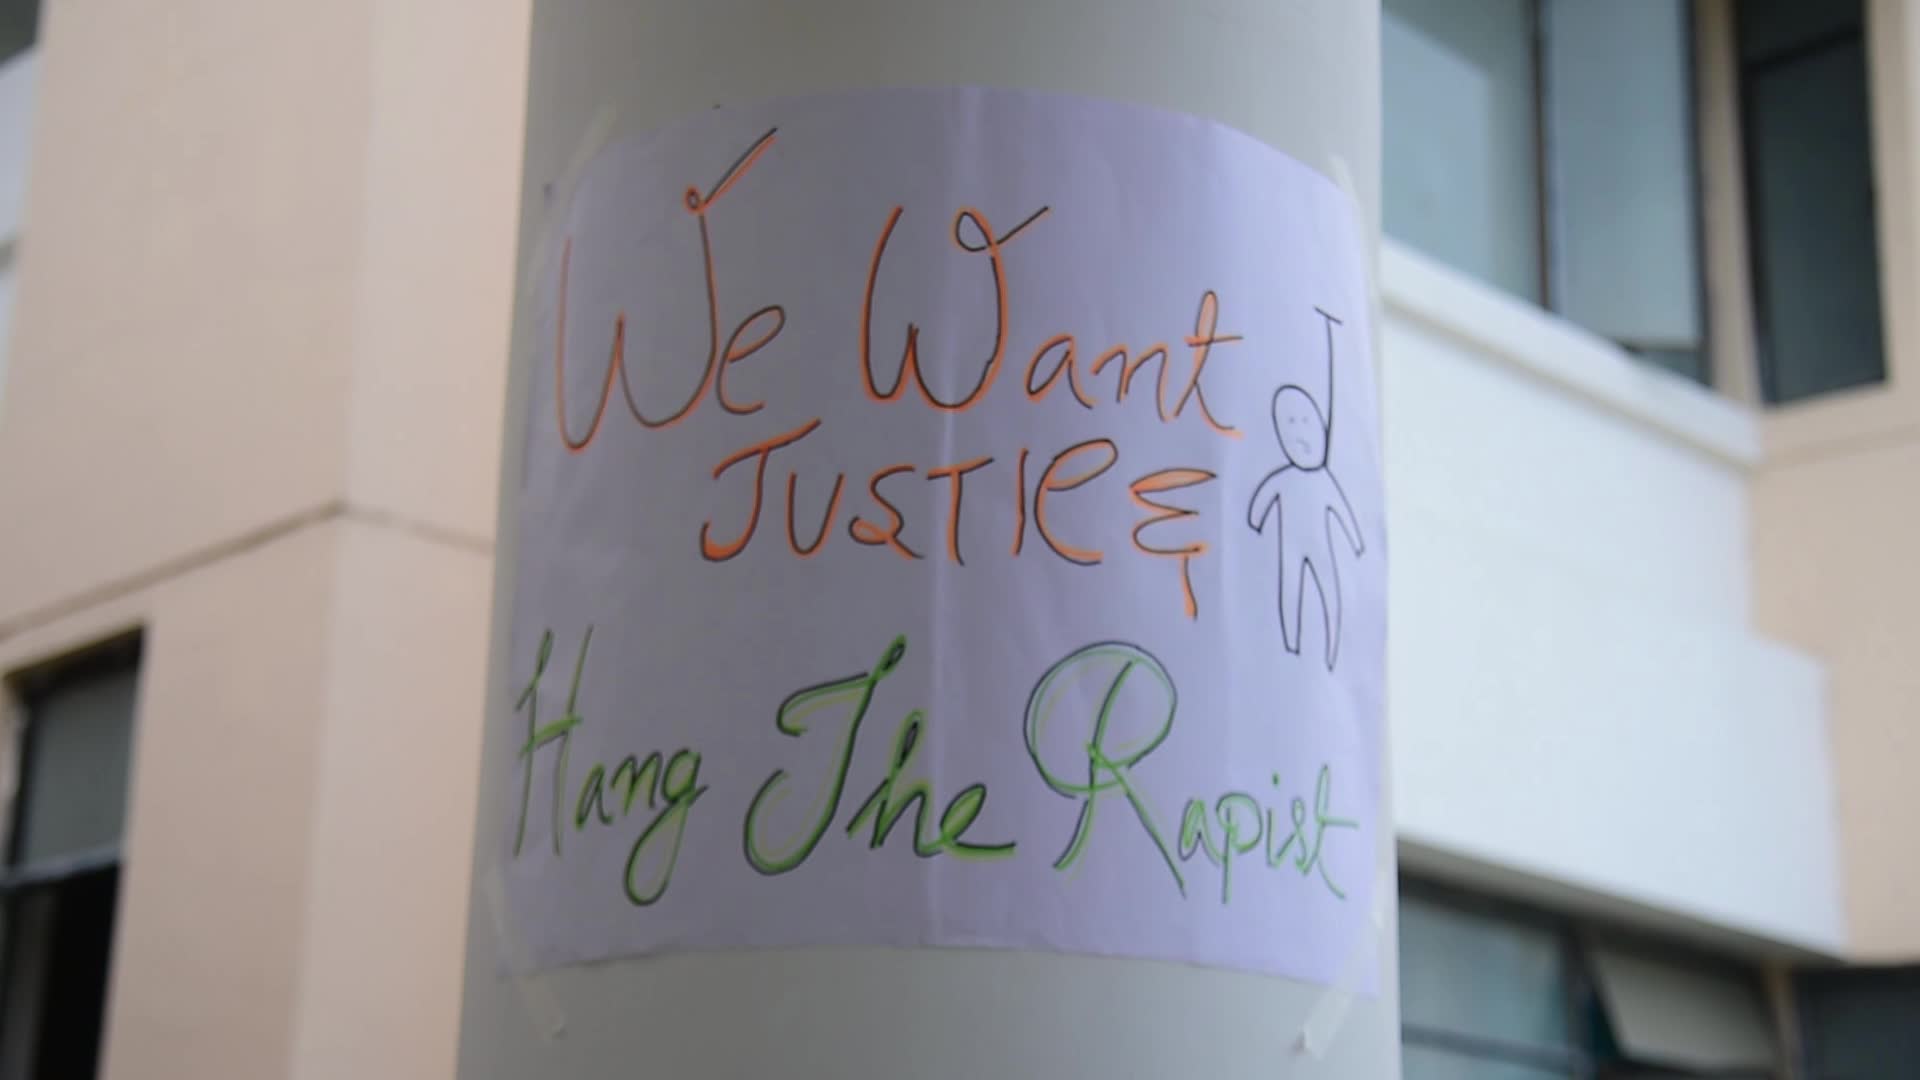 We Want
JUSTICE
Hang The Rapist